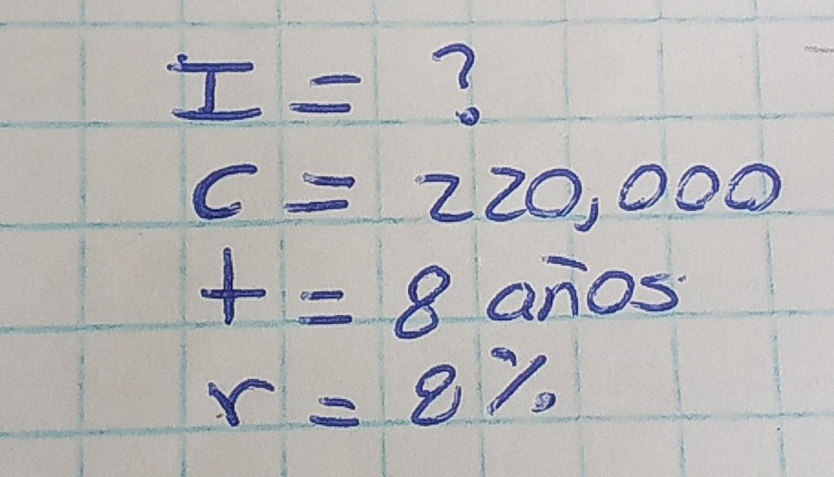 I = ?
C = 220,000
t = 8 años
r = 8%